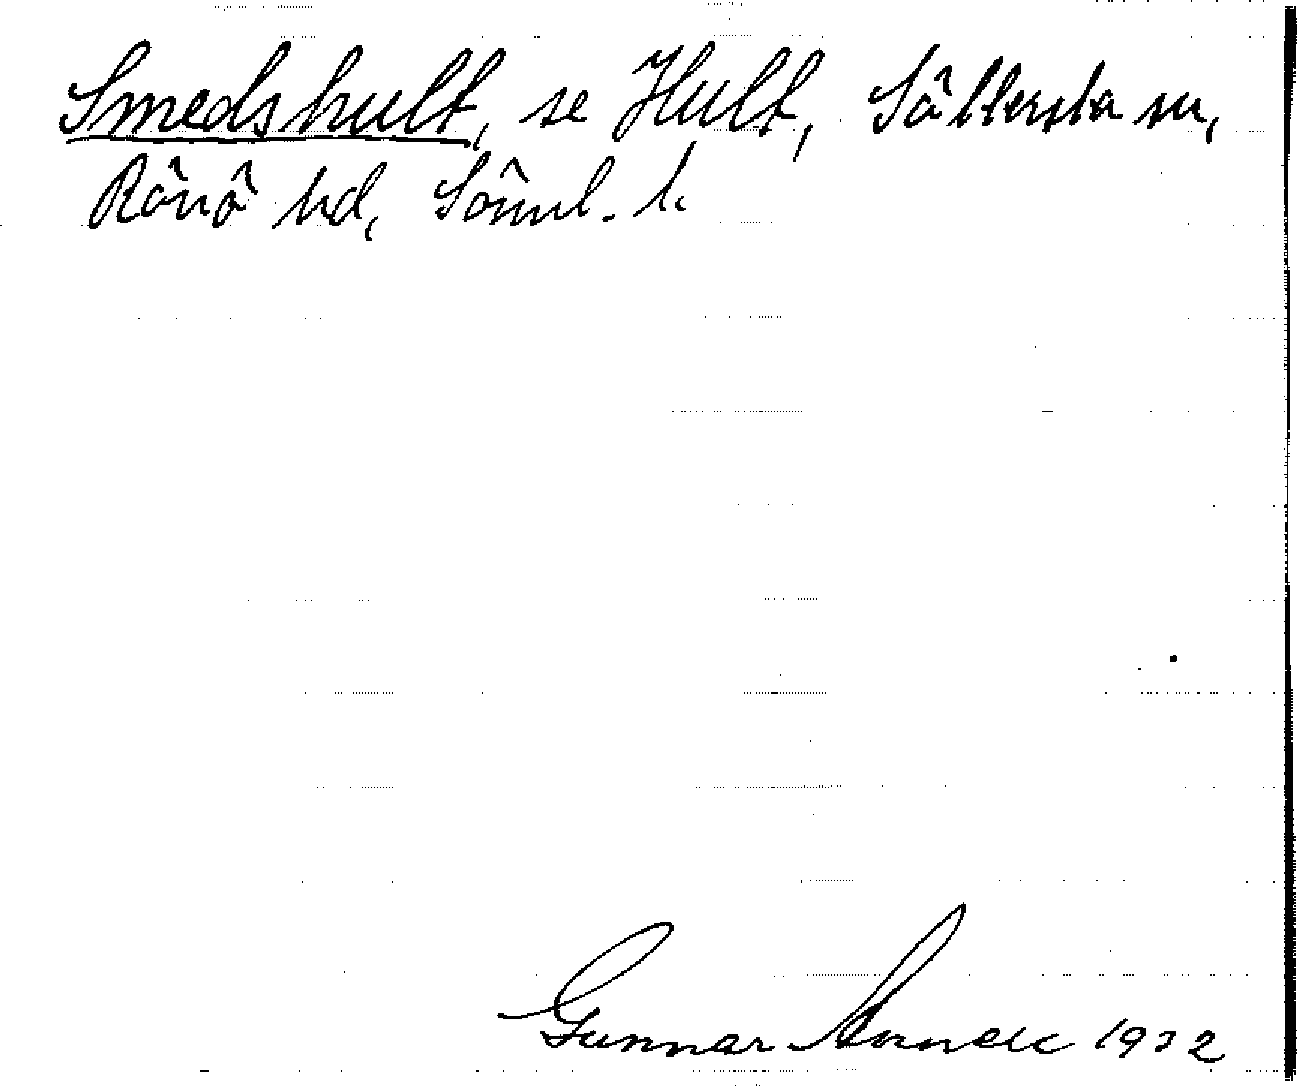 Smedshult, se Hult, Sättersta sn,
Rönö hd, Sörml. l.
Gunnar 1932